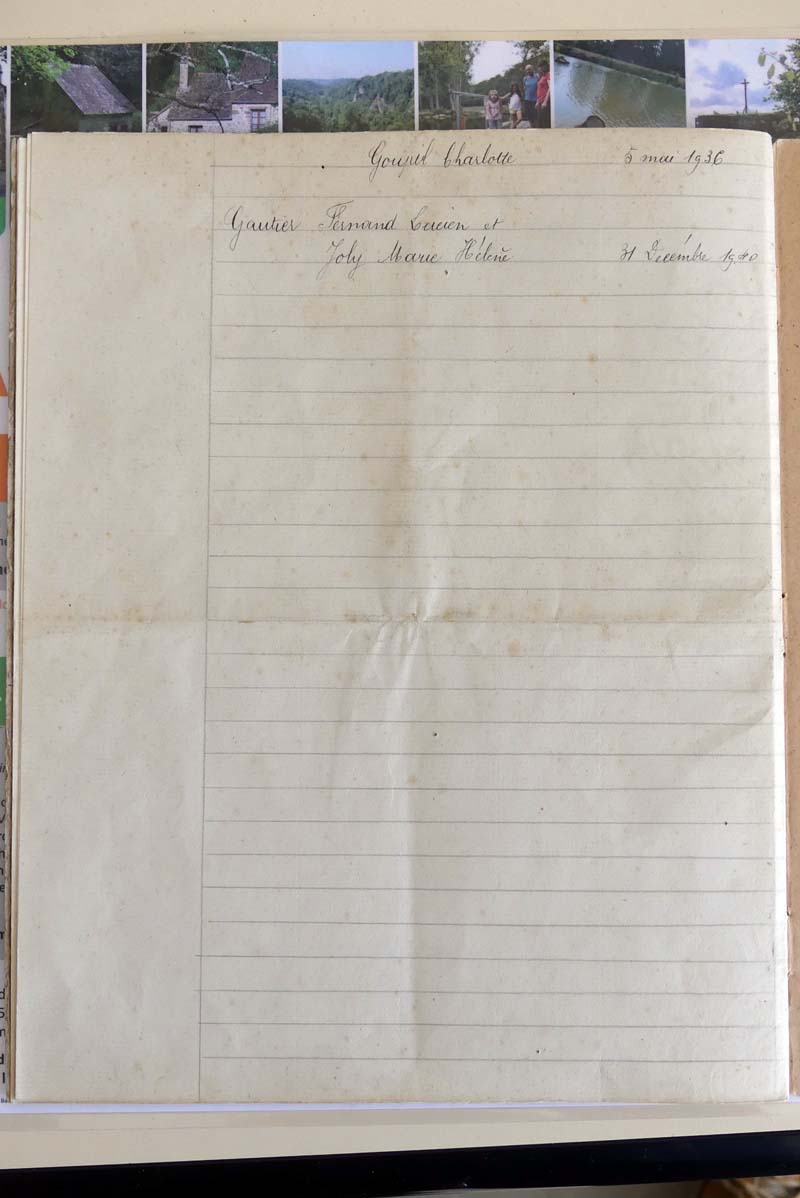 Goupil Charlotte 5 mai 1936
Gautier Fernand Lucien et
Joly Marie Hélène 31 Decémbre 1940